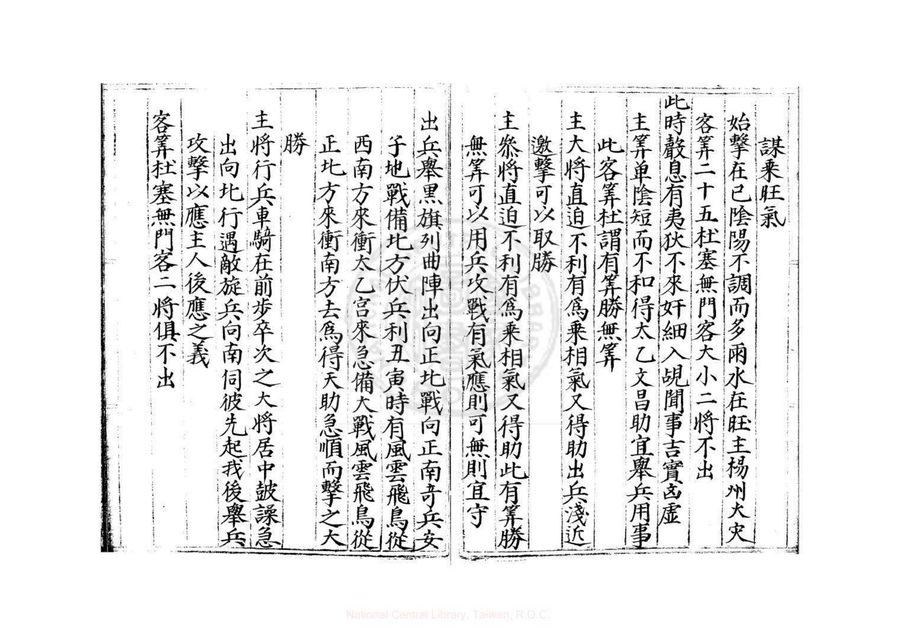 謀乘旺氣
始擊在已陰陽不調而多雨水在旺主楊州大灾
客筭二十五杜塞無門客大小二將不出
此時聲息有夷狄不來奸細入覘聞事吉實凶虛
主筭单陰短而不和得太乙文昌助宜舉兵用事
此客筭杜謂有筭勝無筭
主大將直迫不利有爲乘相氣又得助出兵淺近
邀擊可以取勝
主叅將直迫不利有爲乘相氣又得助此有筭勝
無筭可以用兵攻戰有氣應則可無則宜守
出兵舉黑旗列曲陣出向正北戰向正南竒兵安
子地戰備北方伏兵利丑寅時有風雲飛鳥從
西南方來衝太乙宮來急備大戰風雲飛鳥從
正北方來衝南方去爲得天助急順而擊之大
勝
主將行兵車騎在前步卒次之大將居中鼓譟急
出向北行遇敵旋兵向南伺彼先起我後舉兵
攻擊以應主人後應之義
客筭杜塞無門客二將俱不出
National Central Library, Taiwan, R.O.C.